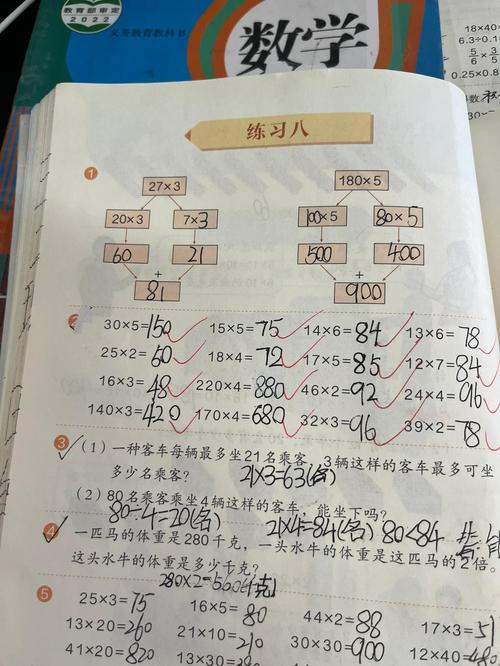 教育部审定
2022
义务教育教科书
数学
18×40=
6.3÷0.1
5/6×3/5
0.25×0.8
练习八
1
27×3 180×5
20×3 7×3 100×5 80×5
60 21 500 400
+ +
81 900
30×5=150 15×5=75 14×6=84 13×6=78
25×2=60 18×4=72 17×5=85 12×7=84
16×3=48 220×4=880 46×2=92 24×4=96
140×3=420 170×4=680 32×3=96 39×2=78
3 (1) 一种客车每辆最多坐21名乘客,3辆这样的客车最多可坐
多少名乘客? 21×3=63(名)
(2) 80名乘客乘坐4辆这样的客车,能坐下吗?
80÷4=20(名) 21×4=84(名) 80<84 答:能
4 一匹马的体重是280千克,一头水牛的体重是这匹马的2倍。
这头水牛的体重是多少千克?
280×2=560(千克)
5
25×3=75 16×5=80 44×2=88 17×3=51
13×20=260 21×10=210 30×30=900 12×40=480
41×20=820